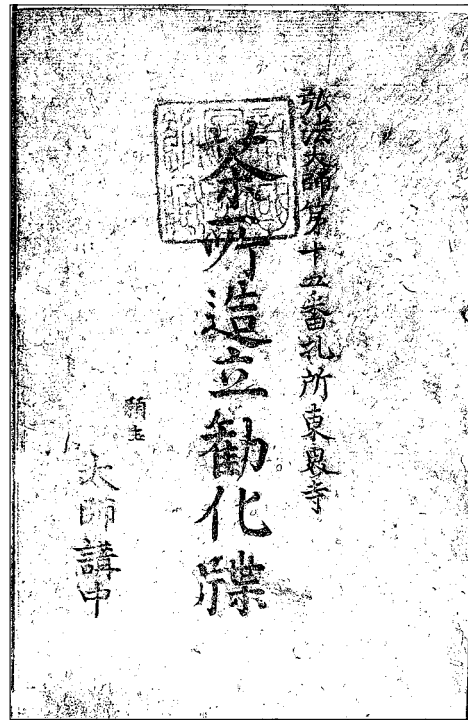 弘法大師第十五番札所東寺
茶所造立勸化牒
願主
大師講中